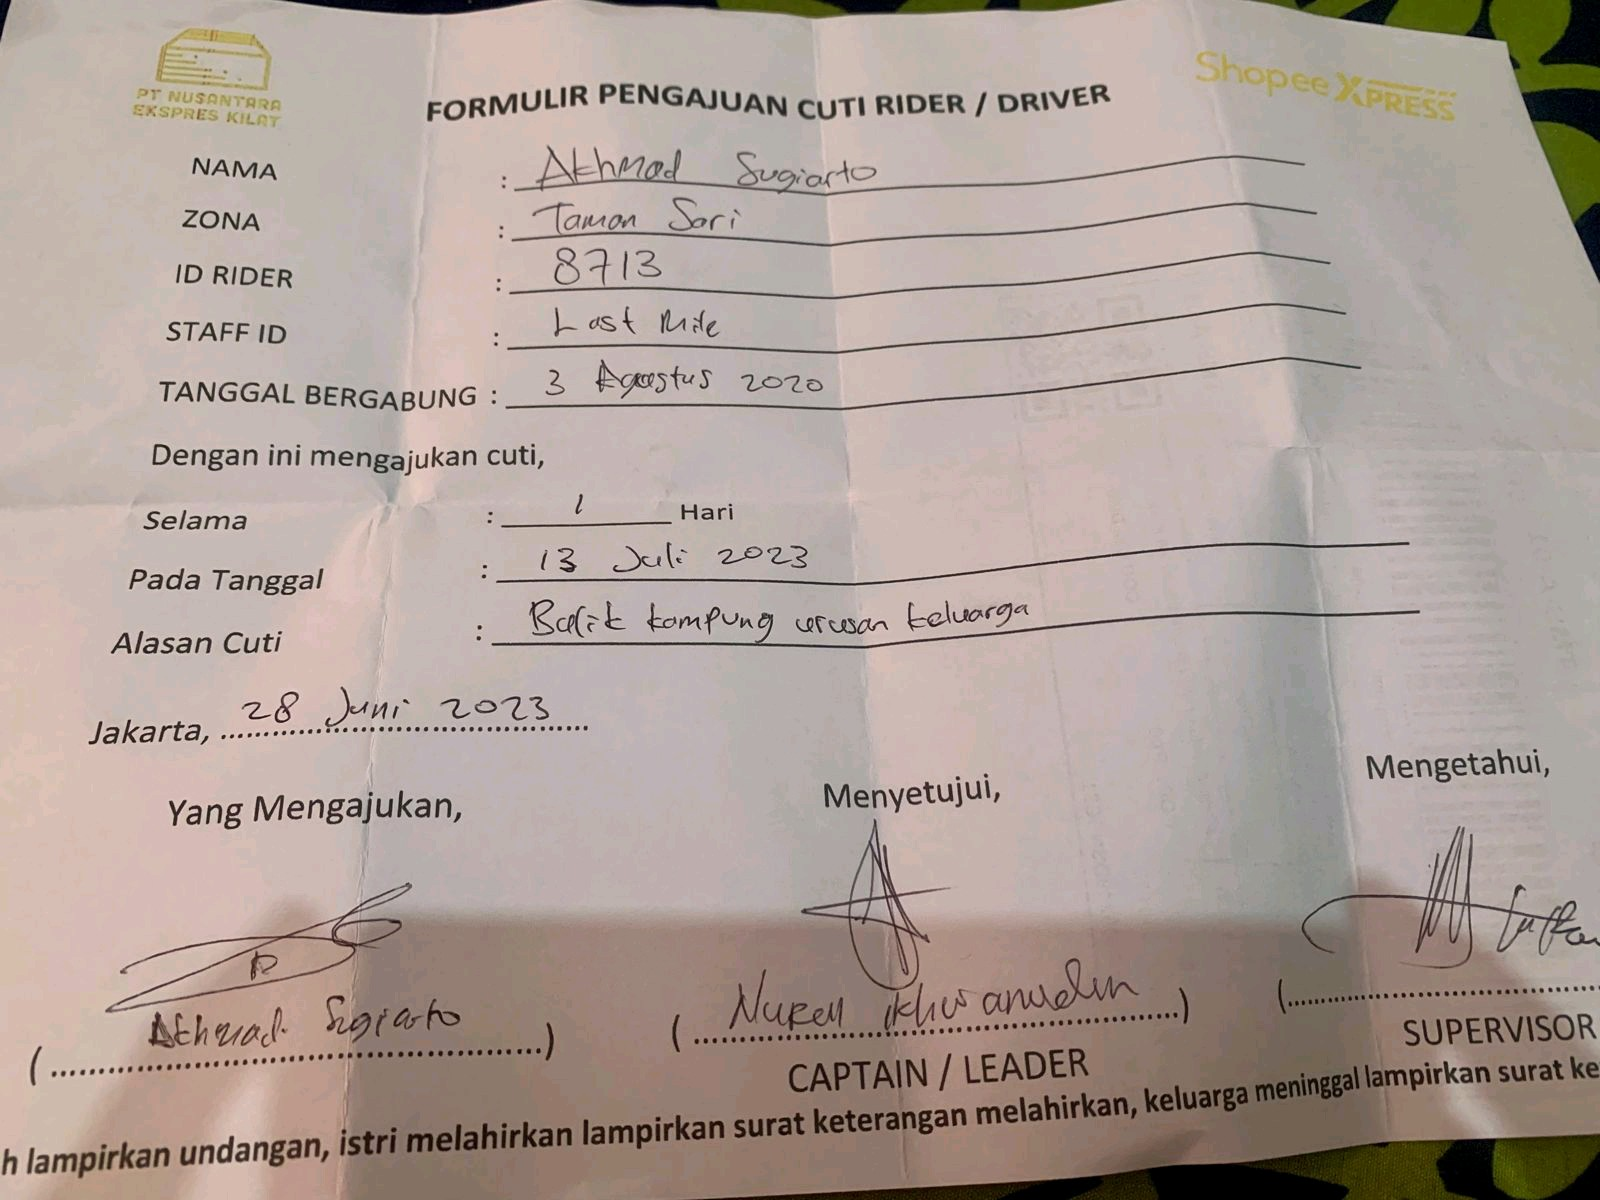 PT NUSANTARA
EKSPRES KILAT
Shopee XPRESS
FORMULIR PENGAJUAN CUTI RIDER / DRIVER
NAMA : Akhmad Sugiarto
ZONA : Taman Sari
ID RIDER : 8713
STAFF ID : Last Mile
TANGGAL BERGABUNG : 3 Agustus 2020
Dengan ini mengajukan cuti,
Selama : 1 Hari
Pada Tanggal : 13 Juli 2023
Alasan Cuti : Balik kampung urusan keluarga
Jakarta, 28 Juni 2023
Yang Mengajukan, Menyetujui, Mengetahui,
(Akhmad Sugiarto) (Nuren ikhwanudin) (
CAPTAIN / LEADER SUPERVISOR
h lampirkan undangan, istri melahirkan lampirkan surat keterangan melahirkan, keluarga meninggal lampirkan surat ke